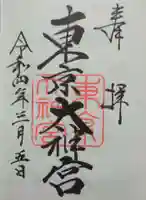 奉拝
東京大神宮
令和四年三月五日
東京大神宮